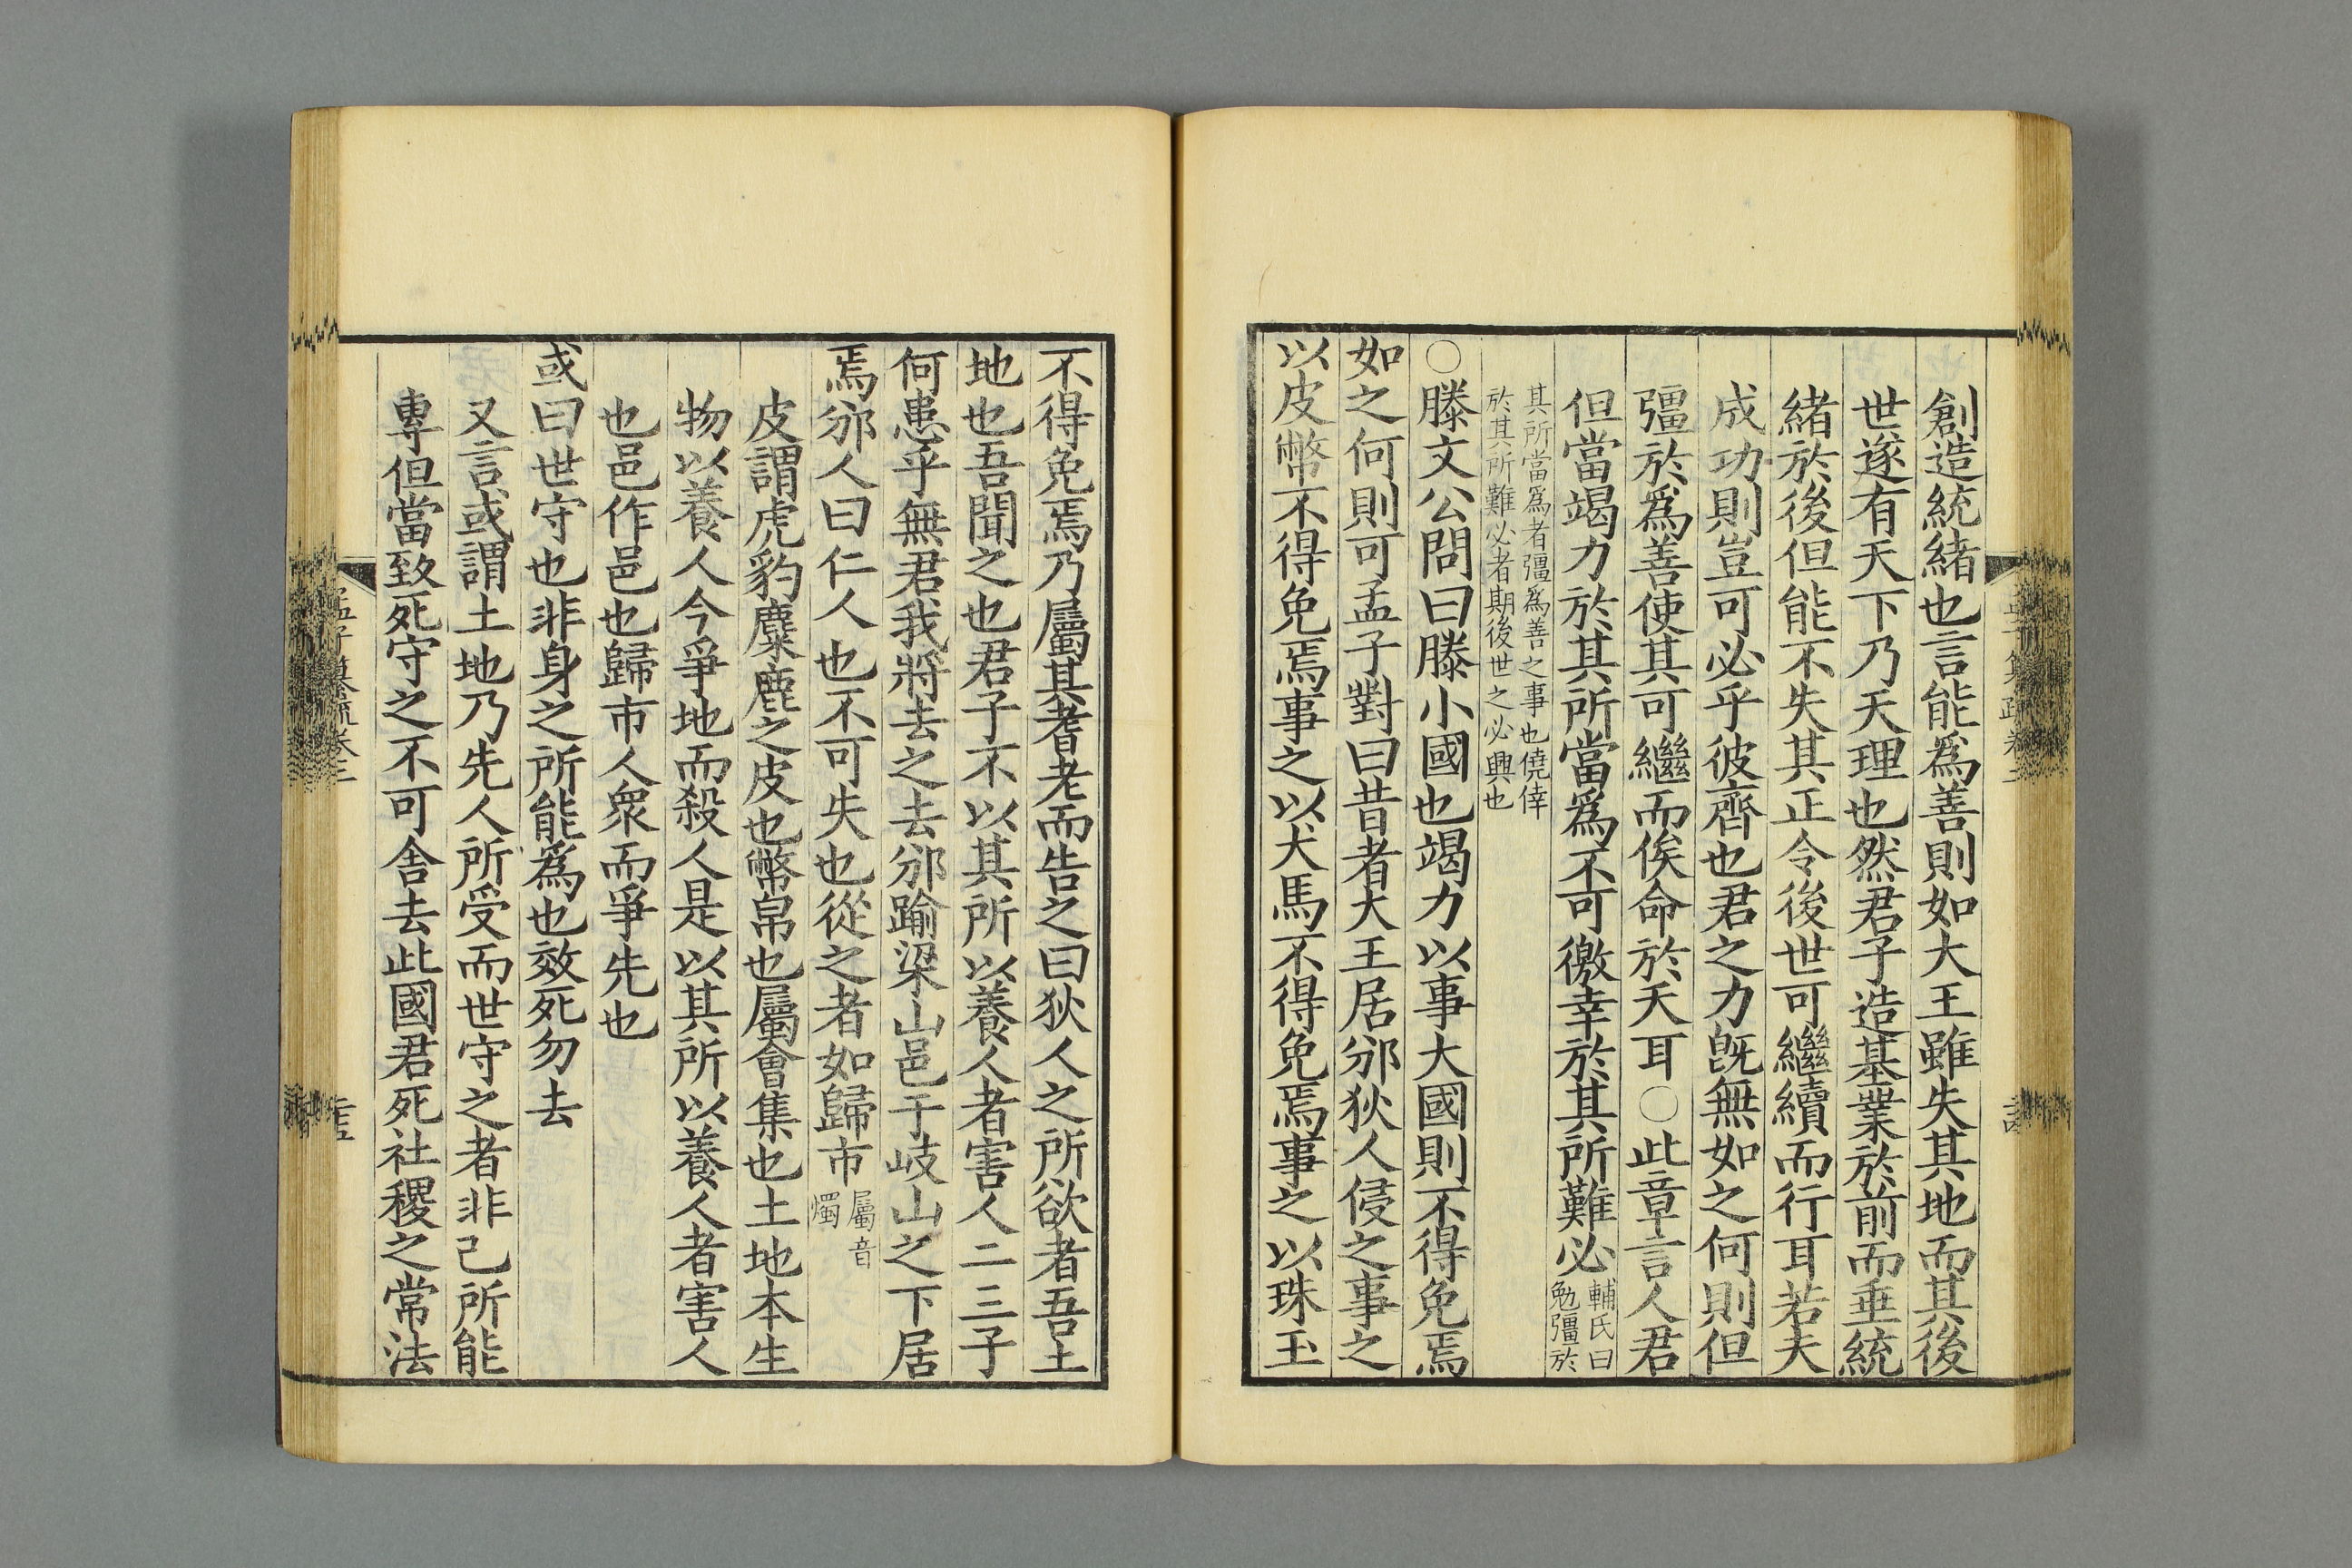 創造統緒也言能爲善則如大王雖失其地而其後
世遂有天下乃天理也然君子造基業於前而垂統
緒於後但能不失其正令後世可繼續而行耳若夫
成功則豈可必乎彼齊也君之力旣無如之何則但
彊於爲善使其可繼而俟命於天耳○此章言人君
但當竭力於其所當爲不可徼幸於其所難必
輔氏曰
勉彊於
其所當爲者彊爲善之事也僥倖
於其所難必者期後世之必興也
○滕文公問曰滕小國也竭力以事大國則不得免焉
如之何則可孟子對曰昔者大王居邠狄人侵之事之
以皮幣不得免焉事之以犬馬不得免焉事之以珠玉
不得免焉乃屬其耆老而告之曰狄人之所欲者吾土
地也吾聞之也君子不以其所以養人者害人二三子
何患乎無君我將去之去邠踰梁山邑于岐山之下居
焉邠人曰仁人也不可失也從之者如歸市
屬音
燭
皮謂虎豹麋鹿之皮也幣帛也屬會集也土地本生
物以養人今爭地而殺人是以其所以養人者害人
也邑作邑也歸市人衆而爭先也
或曰世守也非身之所能爲也效死勿去
又言或謂土地乃先人所受而世守之者非己所能
專但當致死守之不可舍去此國君死社稷之常法
孟子集疏卷二